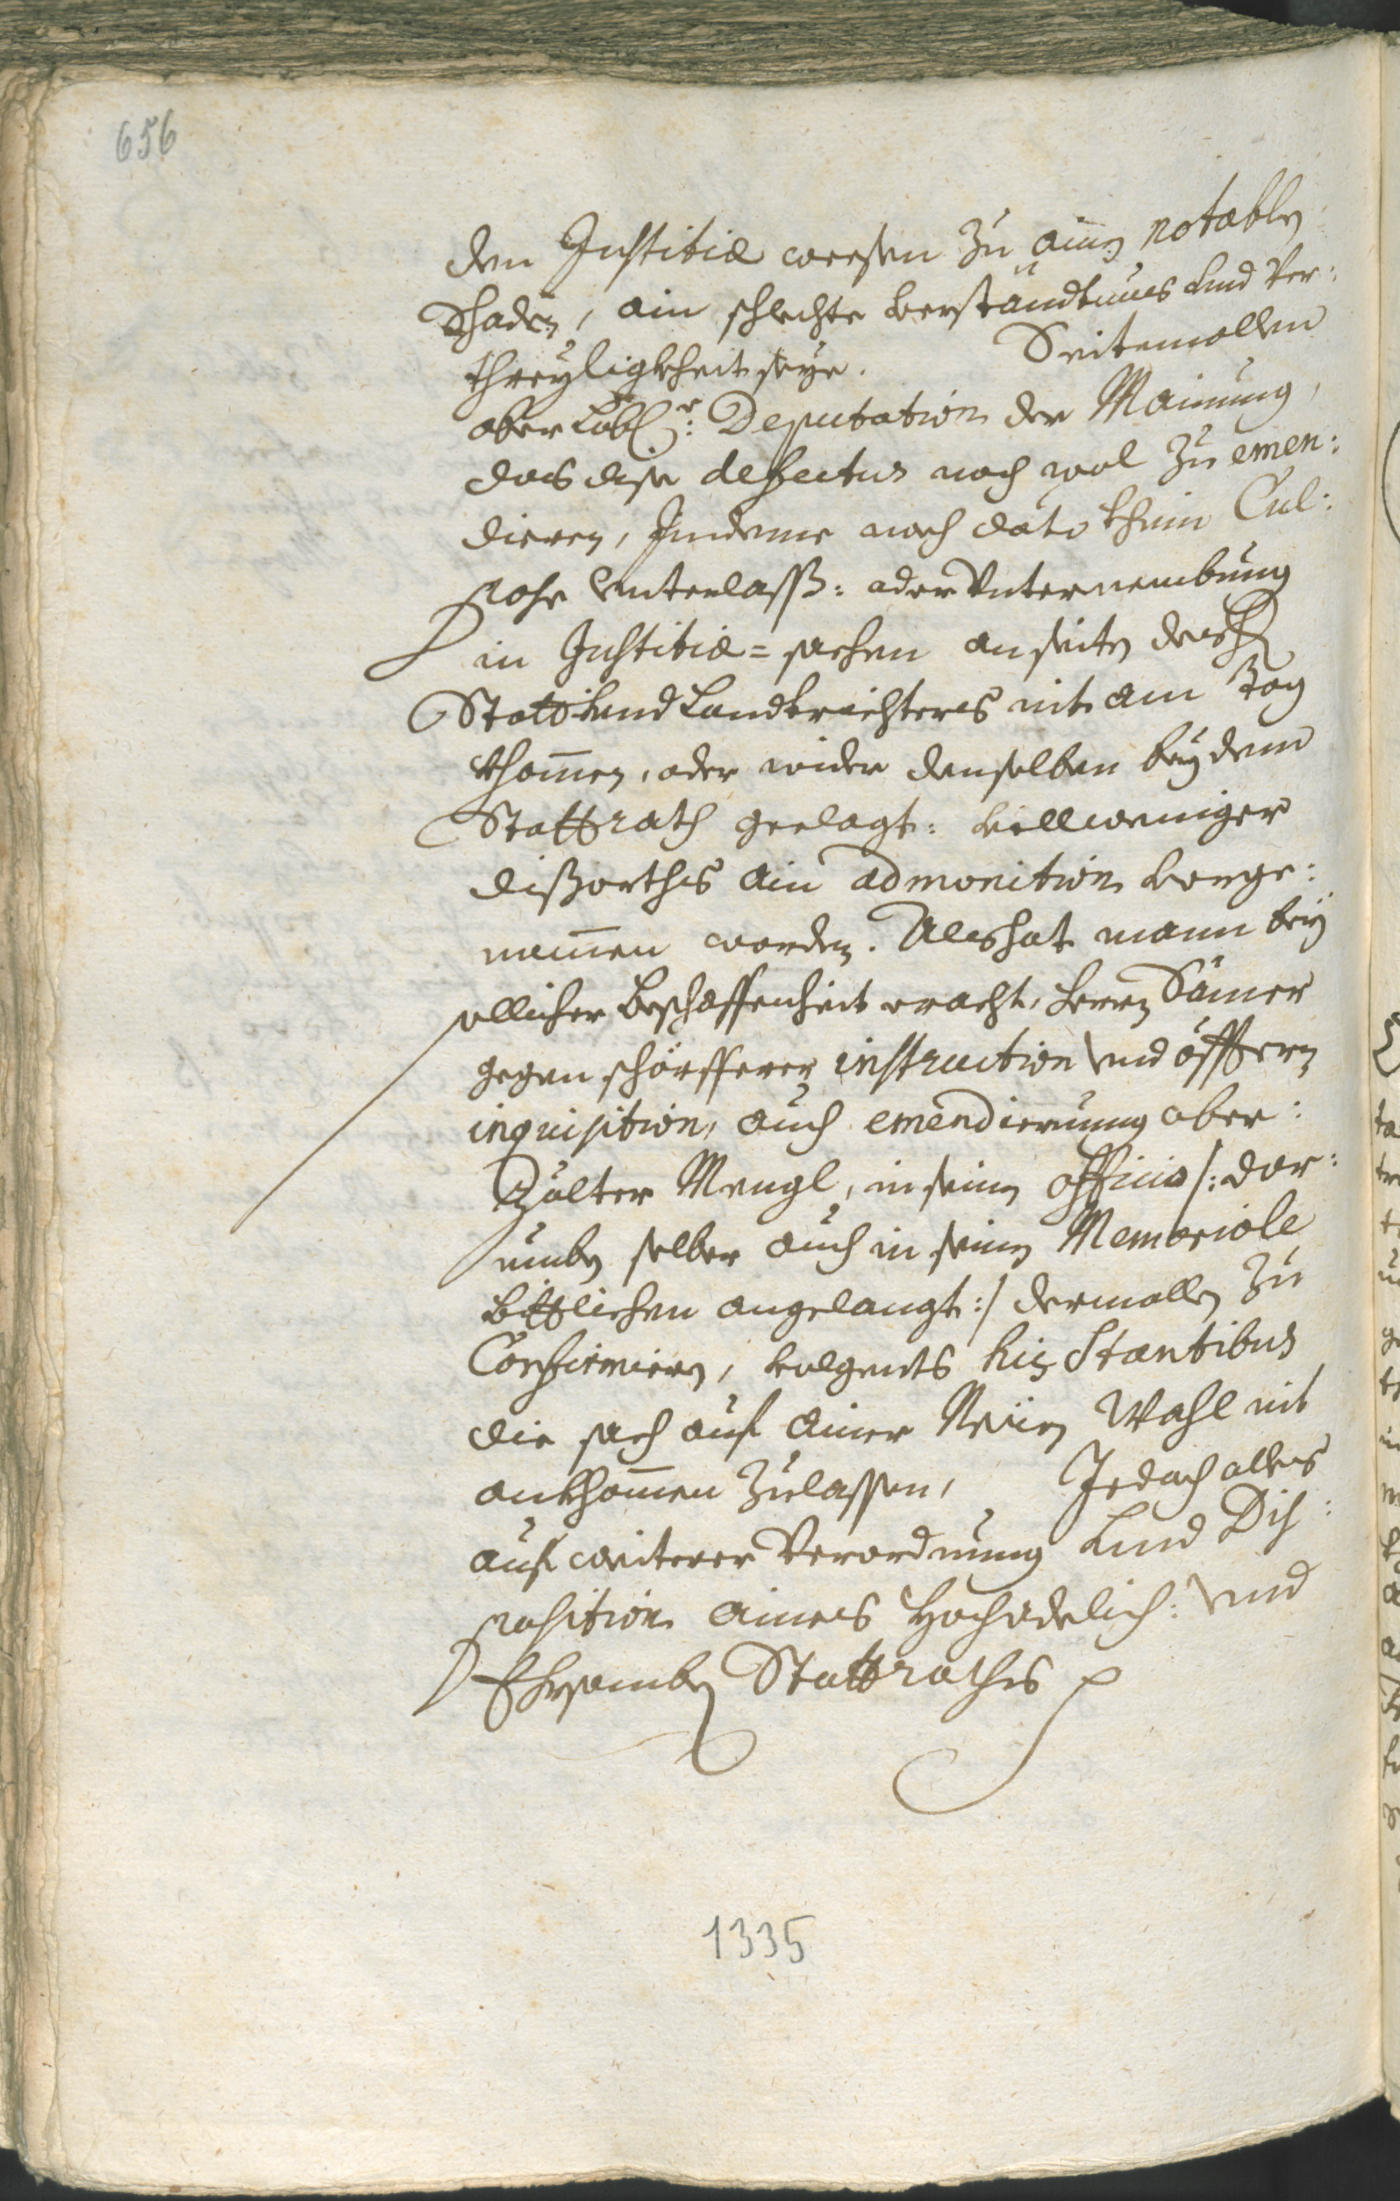 656
den Justitiæ weesen zu ainen notablen
Schaden, ain schlechte verständtnus und Ver:
threyligkheit seye. Seitemallen
aber Löbl:r Deputation der Mainung,
das dise defectus noch wol zu emen:
dieren, Indeme noch dato khein Cul:
pose Unterlass: oder Unternembung
in Justitiæ=sachen an seiten des H:
Statt: und Landtrichters nit am Tag
khom̄en, oder wider denselben bey dem
Stattrath geclagt: villweniger
dißorths ain admonition vorge:
nom̄en worden. Als hat mann bey
sollicher beschaffenheit eracht, herrn Sämer
gegen schörfferer instruction und öfftern
inquisition, auch emendierung ober:
zälter Mengl, in seinen officio /: dar:
umben selber auch in seinen Memoriale
bittlichen angelangt :/ dermallen zu
Confirmiern, volgents his stantibus
die sach auf ainer Neuen Wahl nit
ankhom̄en zulassen, Jedoch alles
auf weiterer Verordnung und Dis:
position aines Hochedlich: und
Ehrsamben Stattrathes
1335